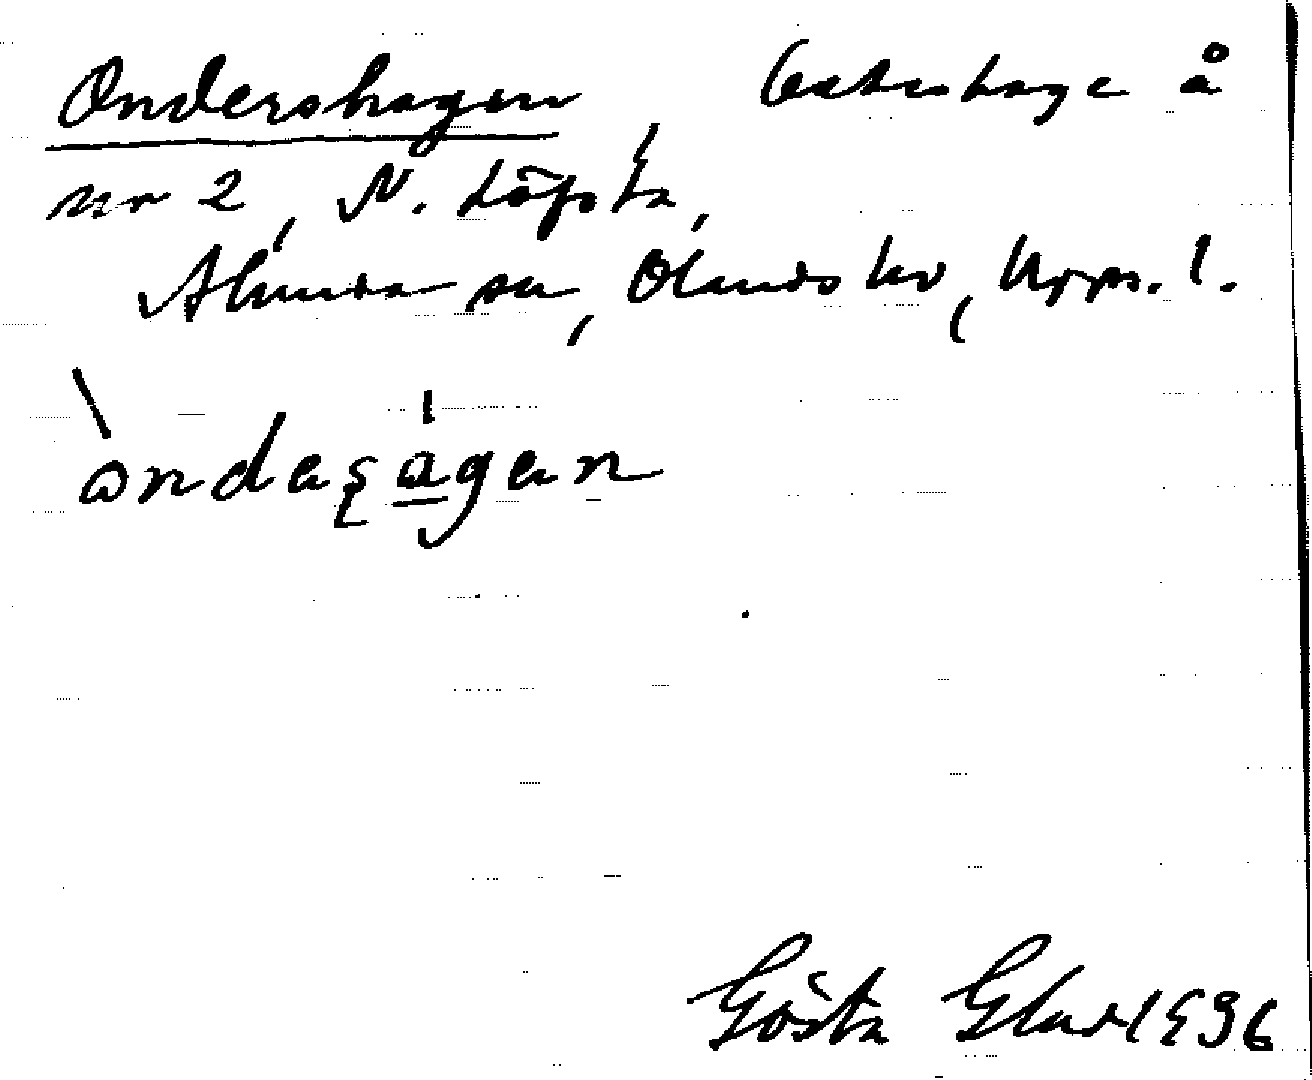 Ondershagen, beteshage å
nr 2, N. Löpsta,
Alunda sn, Olands hd, Upps. l.
òndaşágan
Gösta Glad 1936